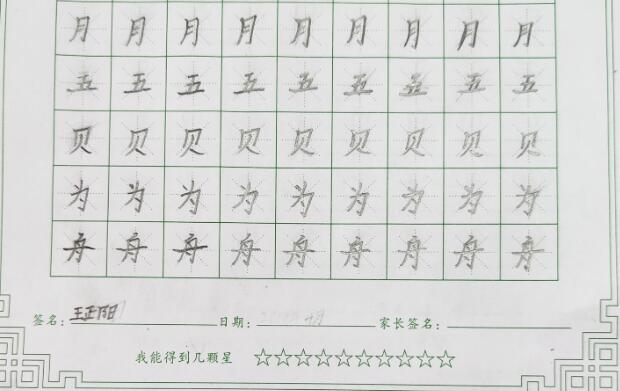 月 月 月 月 月 月 月 月 月
五 五 五 五 五 五 五 五 五
贝 贝 贝 贝 贝 贝 贝 贝 贝
为 为 为 为 为 为 为 为 为
舟 舟 舟 舟 舟 舟 舟 舟 舟
签名：王正阳 日期： 家长签名：
我能得到几颗星 ☆☆☆☆☆☆☆☆☆☆